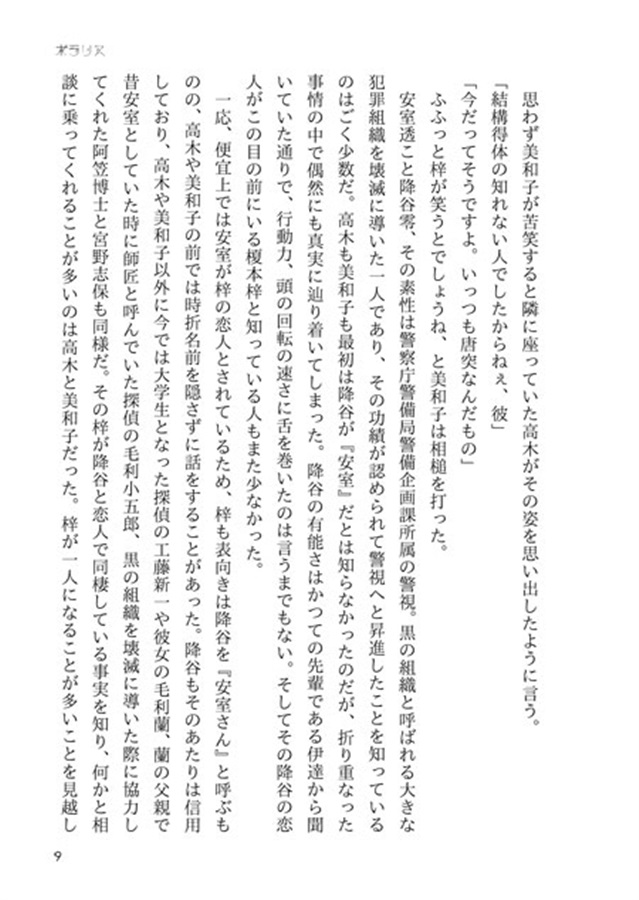 ポラリス
思わず美和子が苦笑すると隣に座っていた高木がその姿を思い出したように言う。
「結構得体の知れない人でしたからねぇ、彼」
「今だってそうですよ。いっつも唐突なんだもの」
ふふっと梓が笑うとでしょうね、と美和子は相槌を打った。
安室透こと降谷零、その素性は警察庁警備局警備企画課所属の警視。黒の組織と呼ばれる大きな
犯罪組織を壊滅に導いた一人であり、その功績が認められて警視へと昇進したことを知っている
のはごく少数だ。高木も美和子も最初は降谷が『安室』だとは知らなかったのだが、折り重なった
事情の中で偶然にも真実に辿り着いてしまった。降谷の有能さはかつての先輩である伊達から聞
いていた通りで、行動力、頭の回転の速さに舌を巻いたのは言うまでもない。そしてその降谷の恋
人がこの目の前にいる榎本梓と知っている人もまた少なかった。
一応、便宜上では安室が梓の恋人とされているため、梓も表向きは降谷を『安室さん』と呼ぶも
のの、高木や美和子の前では時折名前を隠さずに話をすることがあった。降谷もそのあたりは信用
しており、高木や美和子以外に今では大学生となった探偵の工藤新一や彼女の毛利蘭、蘭の父親で
昔安室としていた時に師匠と呼んでいた探偵の毛利小五郎、黒の組織を壊滅に導いた際に協力し
てくれた阿笠博士と宮野志保も同様だ。その梓が降谷と恋人で同棲している事実を知り、何かと相
談に乗ってくれることが多いのは高木と美和子だった。梓が一人になることが多いことを見越し
9